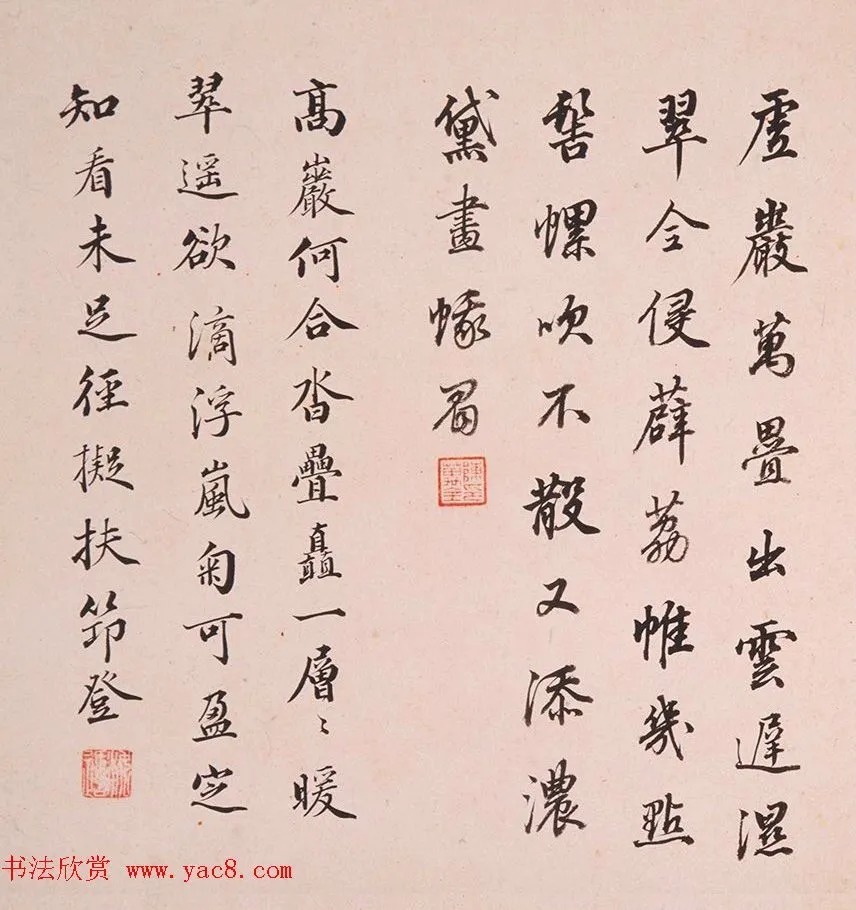 虛巖萬疊出雲遲濕
翠全侵薜荔帷幾點
髻螺吹不散又添濃
黛畫蛾眉
高巖何合沓疊矗一層〻暖
翠遥欲滴浮嵐匊可盈定
知看未足徑擬扶筇登
书法欣赏 www.yac8.com